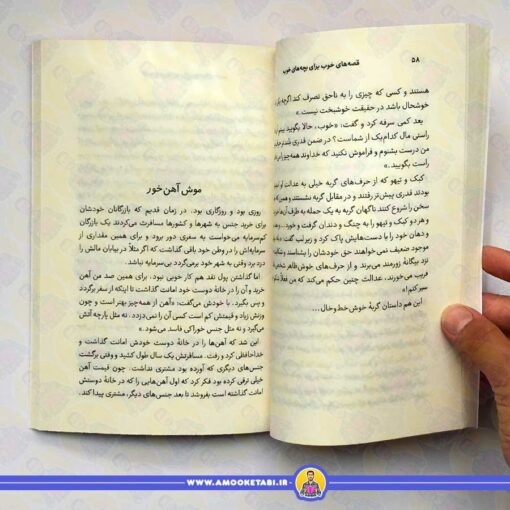 ۵۸ قصه‌های خوب برای بچه‌های خوب
هستند و کسی که چیزی را به ناحق تصرف کند اگرچه
خوشحال باشد در حقیقت خوشبخت نیست.»
بعد کمی سرفه کرد و گفت: «خوب، حالا بگویید
راستی مال کدام‌یک از شماست؟ در ضمن قدری بلندتر
من درست بشنوم و فراموش نکنید که خداوند همه‌چیز را
راست بگویید.»
کبک و تیهو که از حرف‌های گربه خیلی به عدالت او
بودند قدری پیش‌تر رفتند و در مقابل گربه نشستند و
سخن را شروع کنند ناگهان گربه به یک حمله به طرف آن‌ها
و هر دو کبک و تیهو را به چنگ و دندان گرفت و خورد
و دهان خود را با دست‌هایش پاک کرد و زیر لب گفت:
موجود ضعیف نمی‌توانند حق خودشان را بشناسند و
نزد بیگانهٔ زورمند می‌برند و از حرف‌های خوش‌ظاهر
فریب می‌خورند، عدالت چنین حکم می‌کند که من فعلاً
سیر کنم!»
این هم داستان گربهٔ خوش خط و خال...
موش آهن خور
روزی بود و روزگاری بود. در زمان قدیم که بازرگانان خودشان
برای خرید جنس به شهرها و کشورها مسافرت می‌کردند یک بازرگان
کم‌سرمایه می‌خواست به سفری دور برود و برای همین مقداری از
سرمایه‌اش را در وطن خود باقی گذاشت که اگر مثلاً در بیابان مالش را
دزد برد وقتی به شهر خود برمی‌گردد بی‌سرمایه نباشد.
اما گذاشتن پول نقد هم کار خوبی نبود. برای همین صد من آهن
خرید و آن را در خانهٔ دوست خود امانت گذاشت تا اینکه از سفر برگردد
و پس بگیرد. با خودش می‌گفت: «آهن از همه‌چیز بهتر است و چون
وزنش زیاد و قیمتش کم است کسی آن را نمی‌دزدد. نه مثل پارچه آتش
می‌گیرد و نه مثل جنس خوراکی فاسد می‌شود.»
این شد که آهن‌ها را در خانهٔ دوست خودش امانت گذاشت و
خداحافظی کرد و رفت. مسافرتش یک سال طول کشید و وقتی برگشت
جنس‌های دیگری که آورده بود مشتری نداشت. چون قیمت آهن
خیلی ترقی کرده بود فکر کرد که اول آهن‌هایی را که در خانهٔ دوستش
امانت گذاشته است بفروشد تا بعد جنس‌های دیگر، مشتری پیدا کند.
WWW.AMOOKETABI.IR